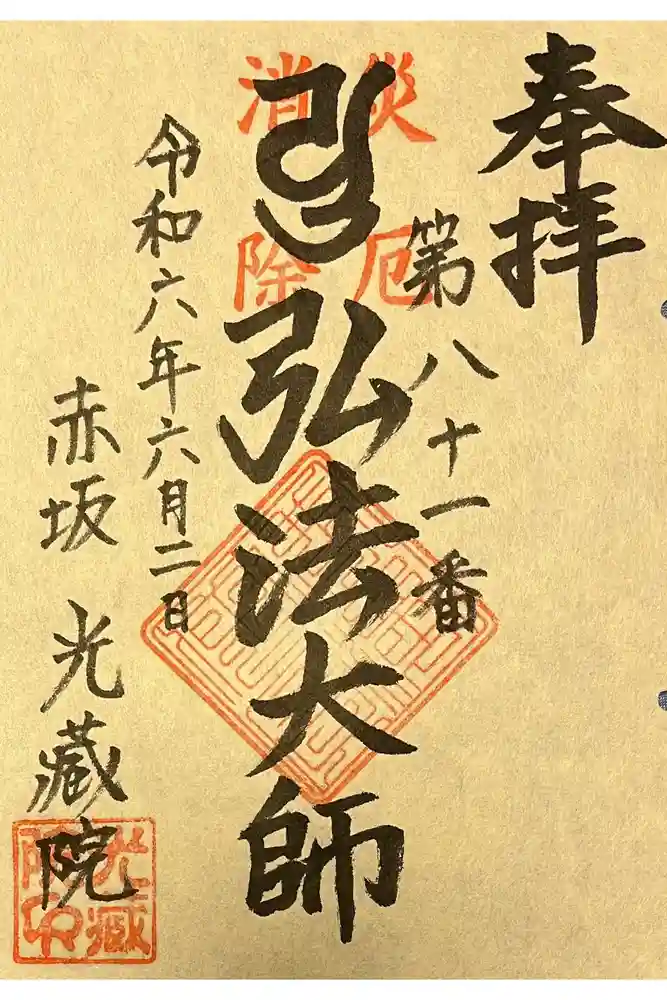 奉拝
第八十一番
災厄
消除
弘法大師
令和六年六月二日
赤坂 光藏院
光藏
院印